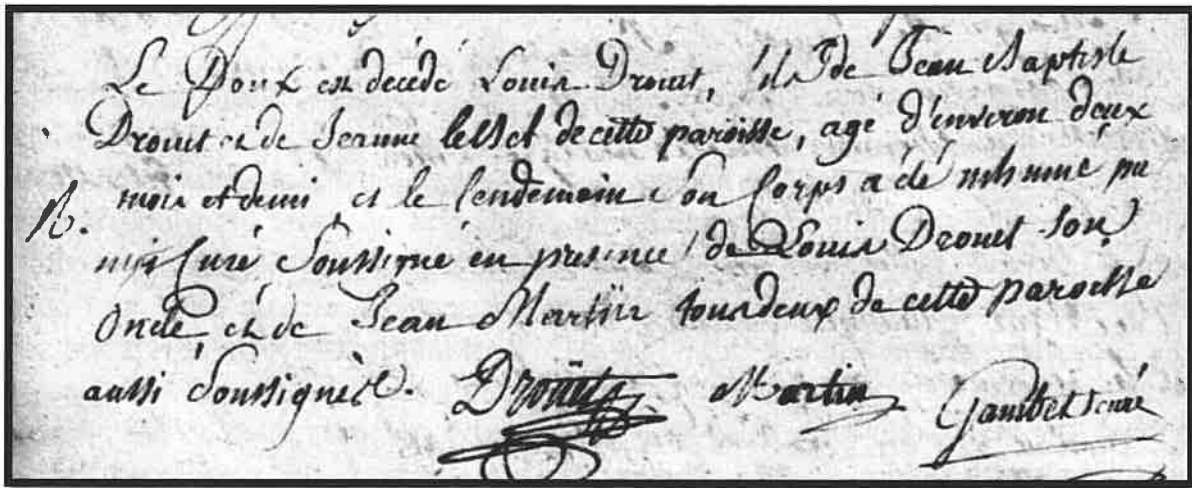 Le Doux est décédé Louis Drouet, fils de Jean Baptiste
Drouet et de Jeanne de cette paroisse, agé d'environ deux
mois et demi et le lendemain son Corps a été inhumé par
Curé Soussigné en presence de Louis Drouet son
Oncle, et de Jean Martin tous deux de cette paroisse
aussi Soussignés.
Drouet Martin Gambet curé